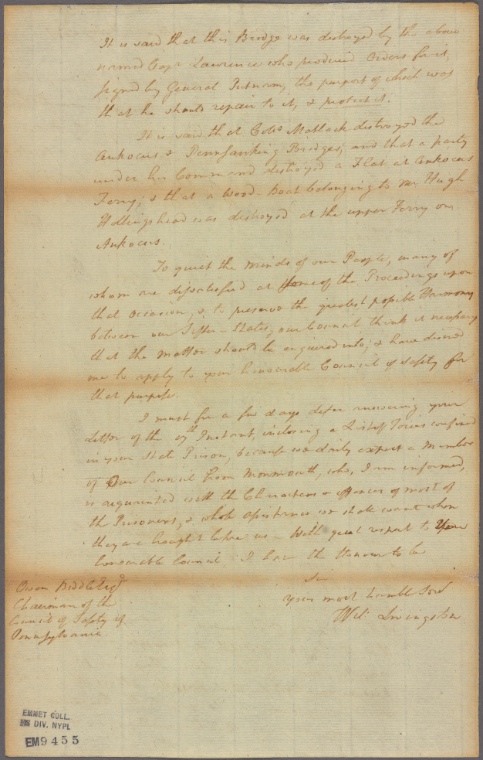 It is said that this Bridge was destroyed by the above
named Capt Lawrence who produced Orders for it
signed by General Putnam, the purport of which was
that he should repair to it, & protect it.
It is said that Colo. Matlack destroyed the
Ankocus & Pennsauking Bridges, and that a party
under his Command destroyed a Flat at Ankocus
Ferry; & that a Wood-Boat belonging to Mr Hugh
Hollingshead was destroyed at the upper Ferry on
Ankocus.
To quiet the Minds of our People, many of
whom are dissatisfied at some of the Proceedings upon
that occasion, & to preserve the greatest possible Harmony
between our Sister-States, our Council think it necessary
that the matter should be enquired into; & have desired
me to apply to your honourable Council of Safety for
that purpose.
I must for a few days defer answering your
Letter of the Instant, inclosing a List of Tories confined
in your State Prison, because we daily expect a Member
of Our Council from Monmouth, who, I am informed,
is acquainted with the Characters & offences of most of
the Prisoners, & whose assistance we shall want when
they are brought before us – With great respect to Your
honourable Council I have the Honour to be
Sir
Your most humble Servt
Wil: Livingston
Owen Biddle Esqr
Chairman of the
Council of Safety of
Pennsylvania
EMMET COLL.
MS DIV. NYPL
EM9455